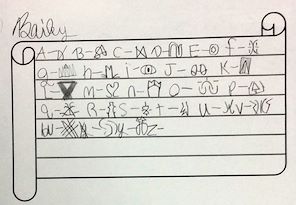 Bailey
A- B- C- D- E- f-
g- h- i- J- K-
l- m- n- O- P-
q- R- S- t- u- v-
w- x- y- z-